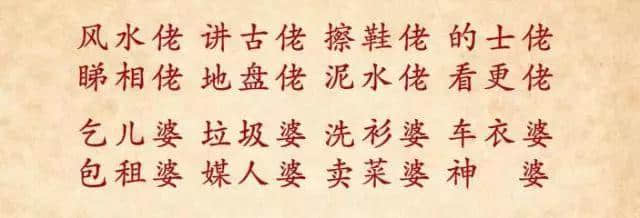 风水佬 讲古佬 擦鞋佬 的士佬
睇相佬 地盘佬 泥水佬 看更佬
乞儿婆 垃圾婆 洗衫婆 车衣婆
包租婆 媒人婆 卖菜婆 神 婆